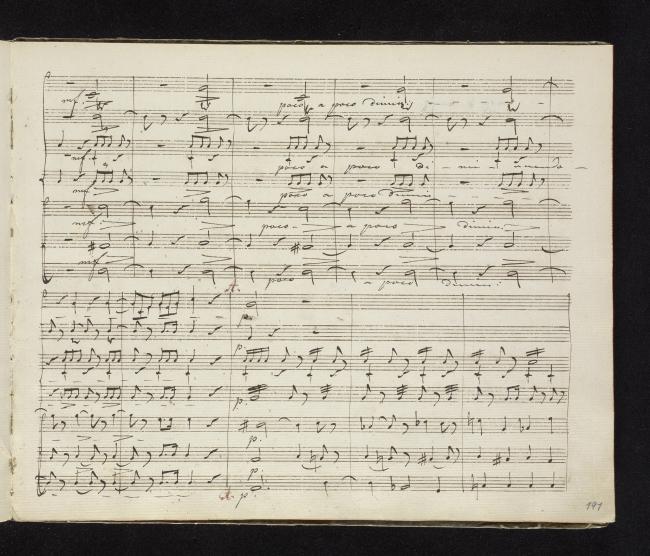 mf. poco a poco dimin:
mf. poco a poco di - mi - nuendo -
mf poco a poco dimin
mf. poco - a poco dimin:
mf poco a poco dimin:
p.
p.
p.
p.
p.
p.
191